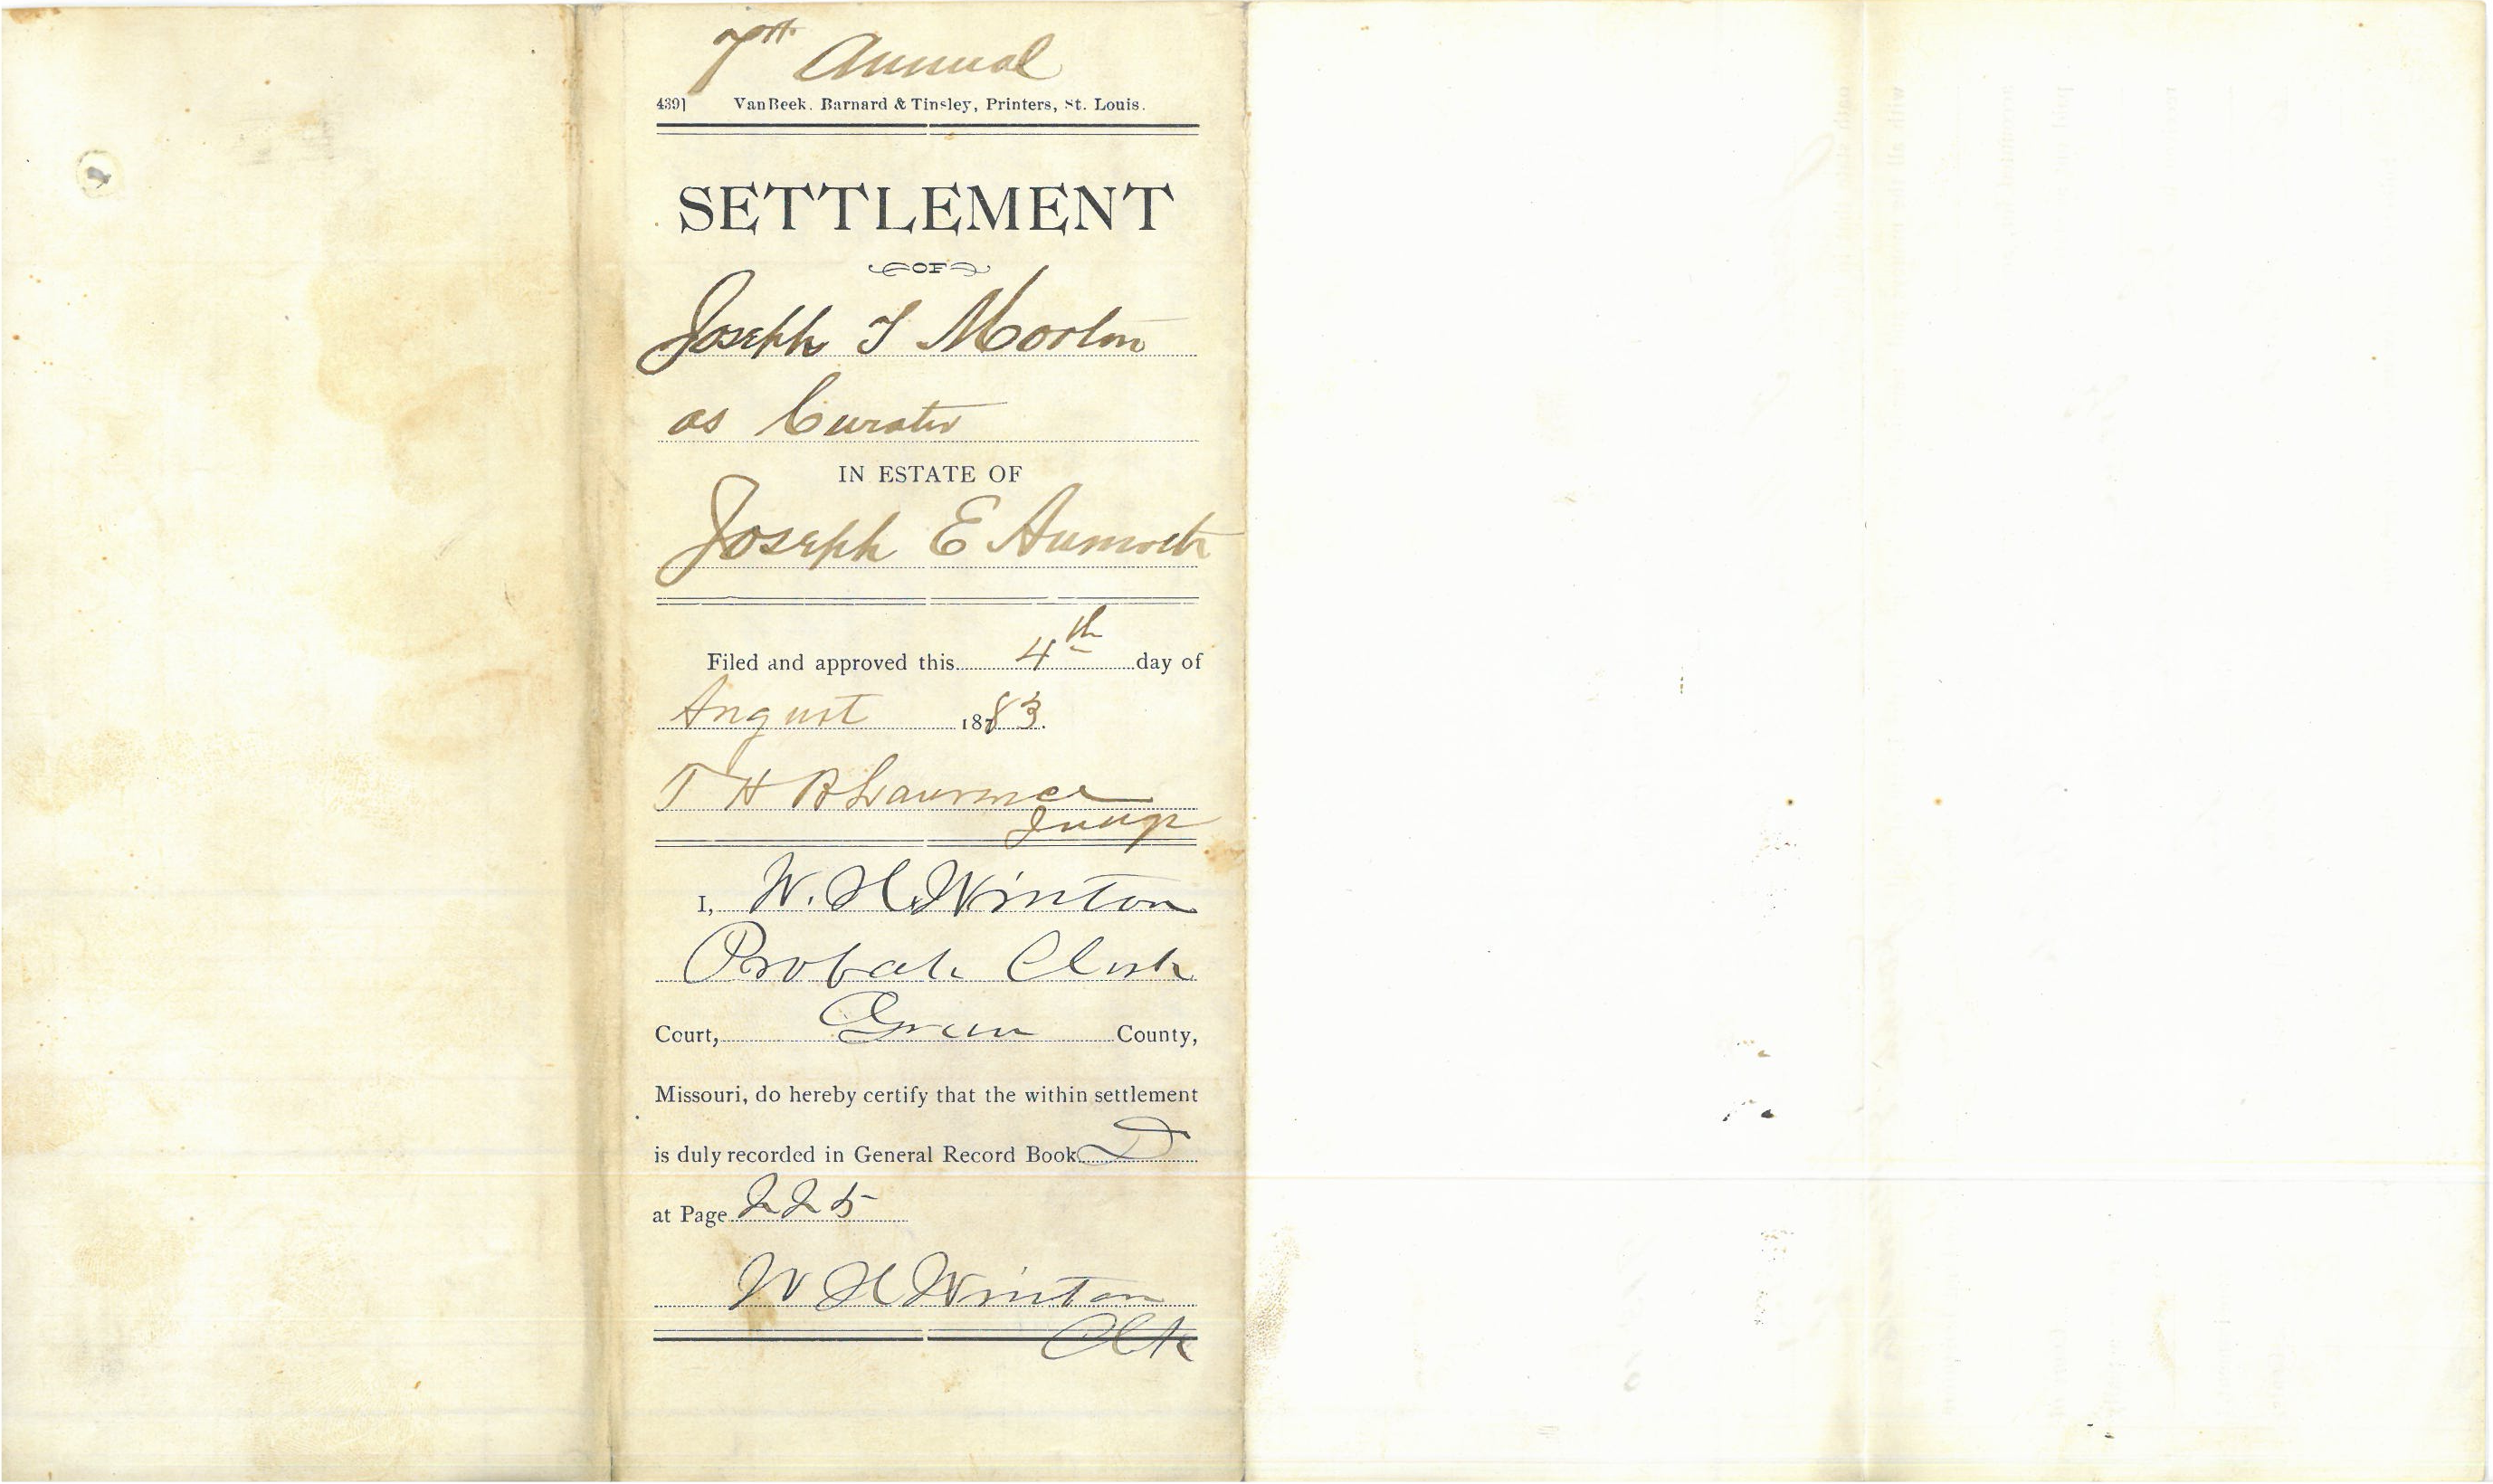 7th Annual
4391 VanBeek, Barnard & Tinsley, Printers, St. Louis.
SETTLEMENT
OF
Joseph T Morton
as Curator
IN ESTATE OF
Joseph E
Filed and approved this 4th day of
August 1883.
T H B Lawrence
Judge
I, W. H. Winton
Probate Clerk
Court, Green County,
Missouri, do hereby certify that the within settlement
is duly recorded in General Record Book D
at Page 225
W H Winton
Clk